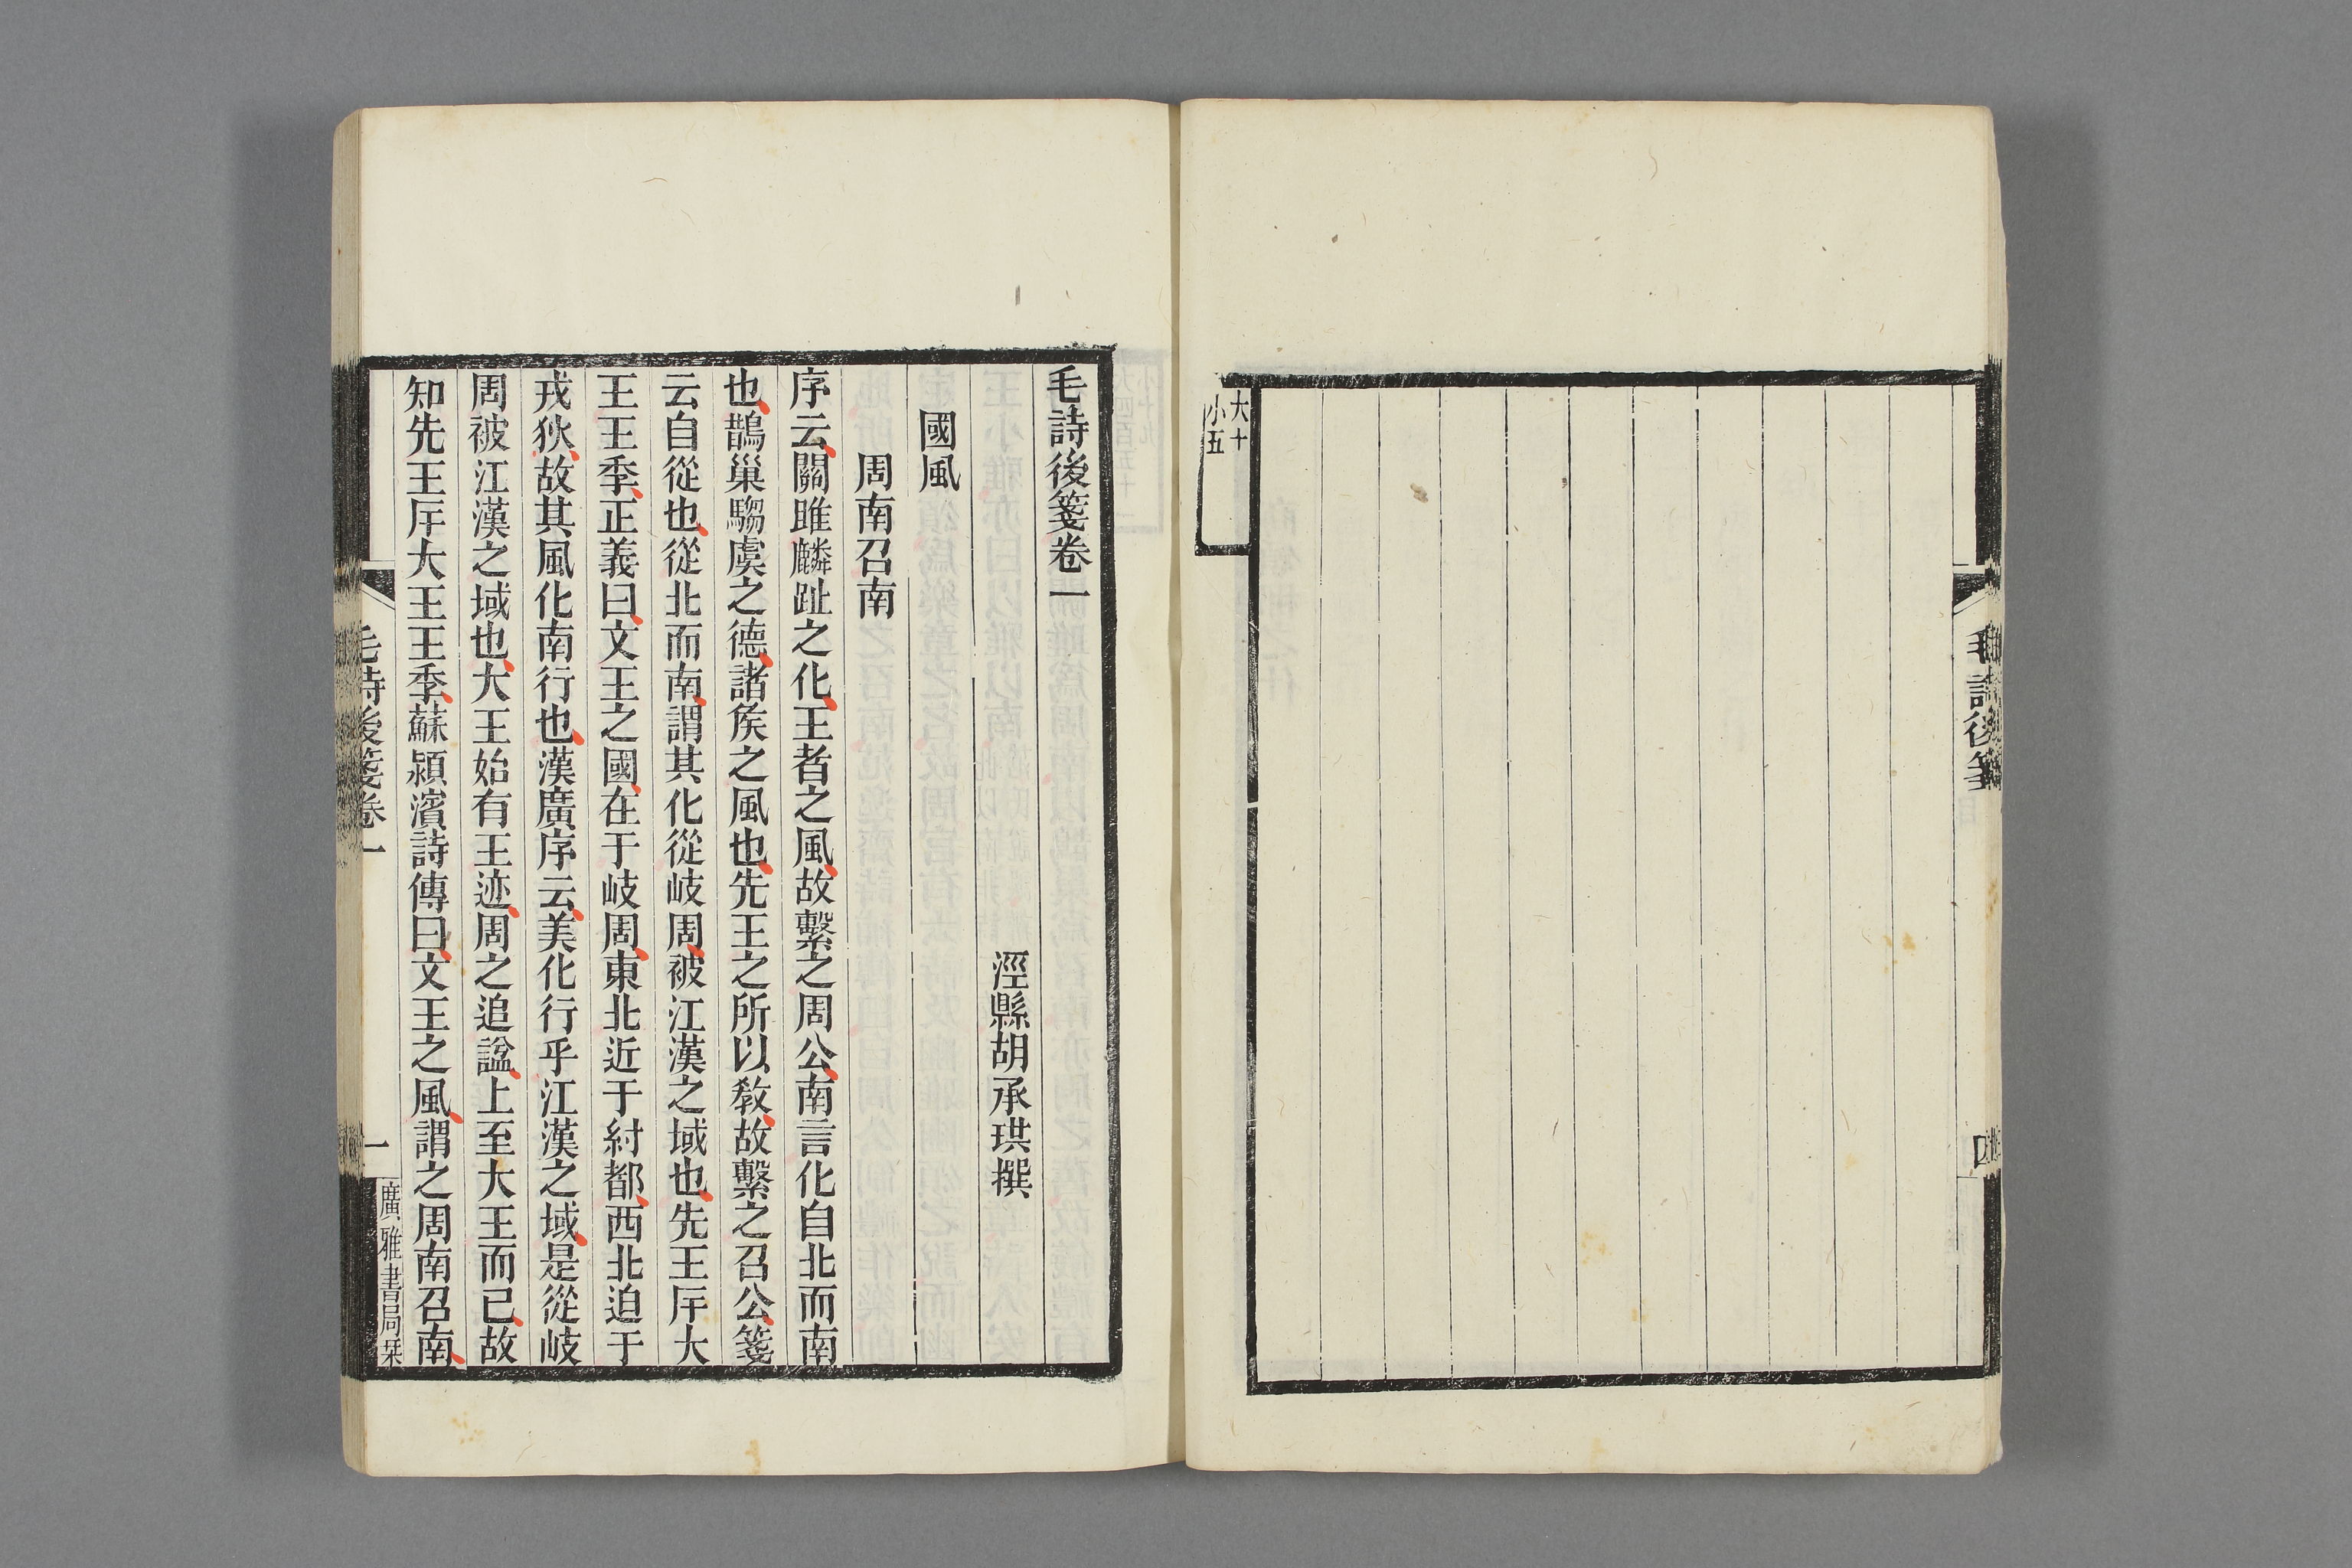 大十
小五
毛詩後箋
四
毛詩後箋卷一
涇縣胡承珙撰
國風
周南召南
序云關雎麟趾之化王者之風故繫之周公南言化自北而南
也鵲巢騶虞之德諸矦之風也先王之所以敎故繫之召公箋
云自從也從北而南謂其化從岐周被江漢之域也先王斥大
王王季正義曰文王之國在于岐周東北近于紂都西北迫于
戎狄故其風化南行也漢廣序云美化行乎江漢之域是從岐
周被江漢之域也大王始有王迹周之追諡上至大王而已故
知先王斥大王王季蘇潁濱詩傳曰文王之風謂之周南召南
毛詩後箋卷一
一
廣雅書局栞